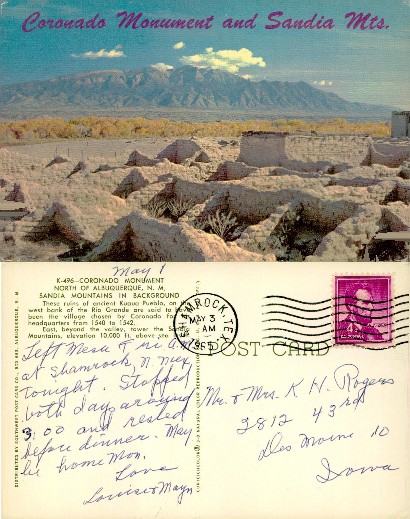 Coronado Monument and Sandia Mts.
May 1
K-496—CORONADO MONUMENT
NORTH OF ALBUQUERQUE, N. M.
SANDIA MOUNTAINS IN BACKGROUND
These ruins of ancient Kuaua Pueblo, on
west bank of the Rio Grande are said to
been the village chosen by Coronado
headquarters from 1540 to 1542.
East, beyond the valley, tower the San
Mountains, elevation 10,000 ft. above
SHAMROCK, TEX.
MAY 3
AM
POST CARD
Left Mesa
at Shamrock, N. Mex
tonight. Stopped
both days around
3:00 and rested
before dinner. May
be home Mon.
Love
Louise & Mayn
Mr. & Mrs. K. H. Rogers
2812 43rd
Des Moine 10
Iowa